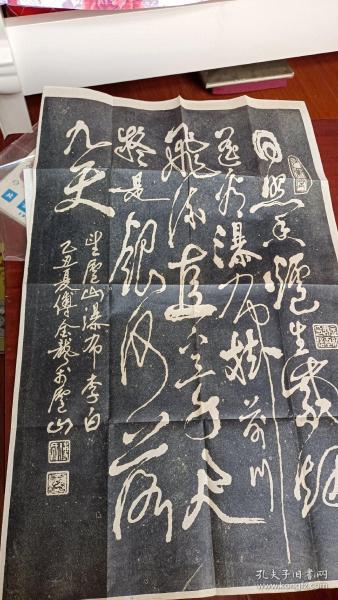 日照香炉生紫烟
遥看瀑布挂前川
飛流直下三千尺
疑是銀河落
九天
望廬山瀑布李白
乙丑夏傅金龙书廬山
孔夫子旧书网